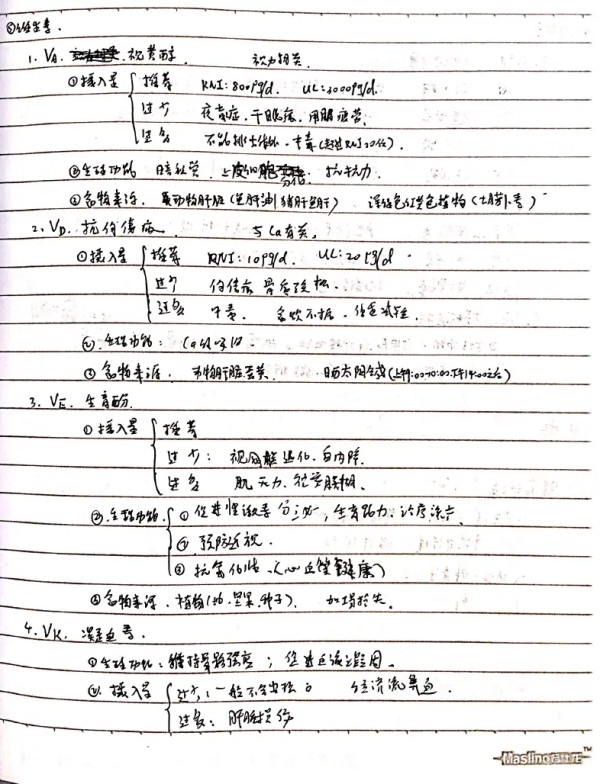 ⑤维生素.
1. VA. 视黄醇 视力相关.
①摄入量 推荐 RNI: 800μg/d. UL: 3000μg/d.
过少 夜盲症、干眼症、用眼疲劳.
过多 不能排出体外、中毒(超过RNI 20倍).
②生理功能 暗视觉 上皮细胞分化 抗
③食物来源. 动物肝脏(鱼肝油 猪肝 鱼肝) 深绿色红黄色植物(胡萝卜素)
2. VD. 抗佝偻病 与Ca有关.
①摄入量 推荐 RNI: 10μg/d. UL: 20μg/d.
过少 佝偻病 骨质疏松.
过多 中毒. 食欲不振. 体重减轻.
②生理功能: Ca吸收
③食物来源. 动物肝脏蛋黄. 晒太阳
3. VE. 生育酚
①摄入量 推荐
过少: 视网膜退化、白内障.
过多 肌无力. 视觉模糊.
②生理功能 ①促进性激素分泌, 生育能力. 治疗流产.
②预防近视.
③抗氧化性 (心血管健康)
③食物来源. 植物(油.坚果.种子). 加热损失.
4. VK. 凝血素.
①生理功能: 维持骨骼强度; 促进血液凝固.
②摄入量 过少: 一般不会缺乏
过多: 肝脏损伤
Maslino